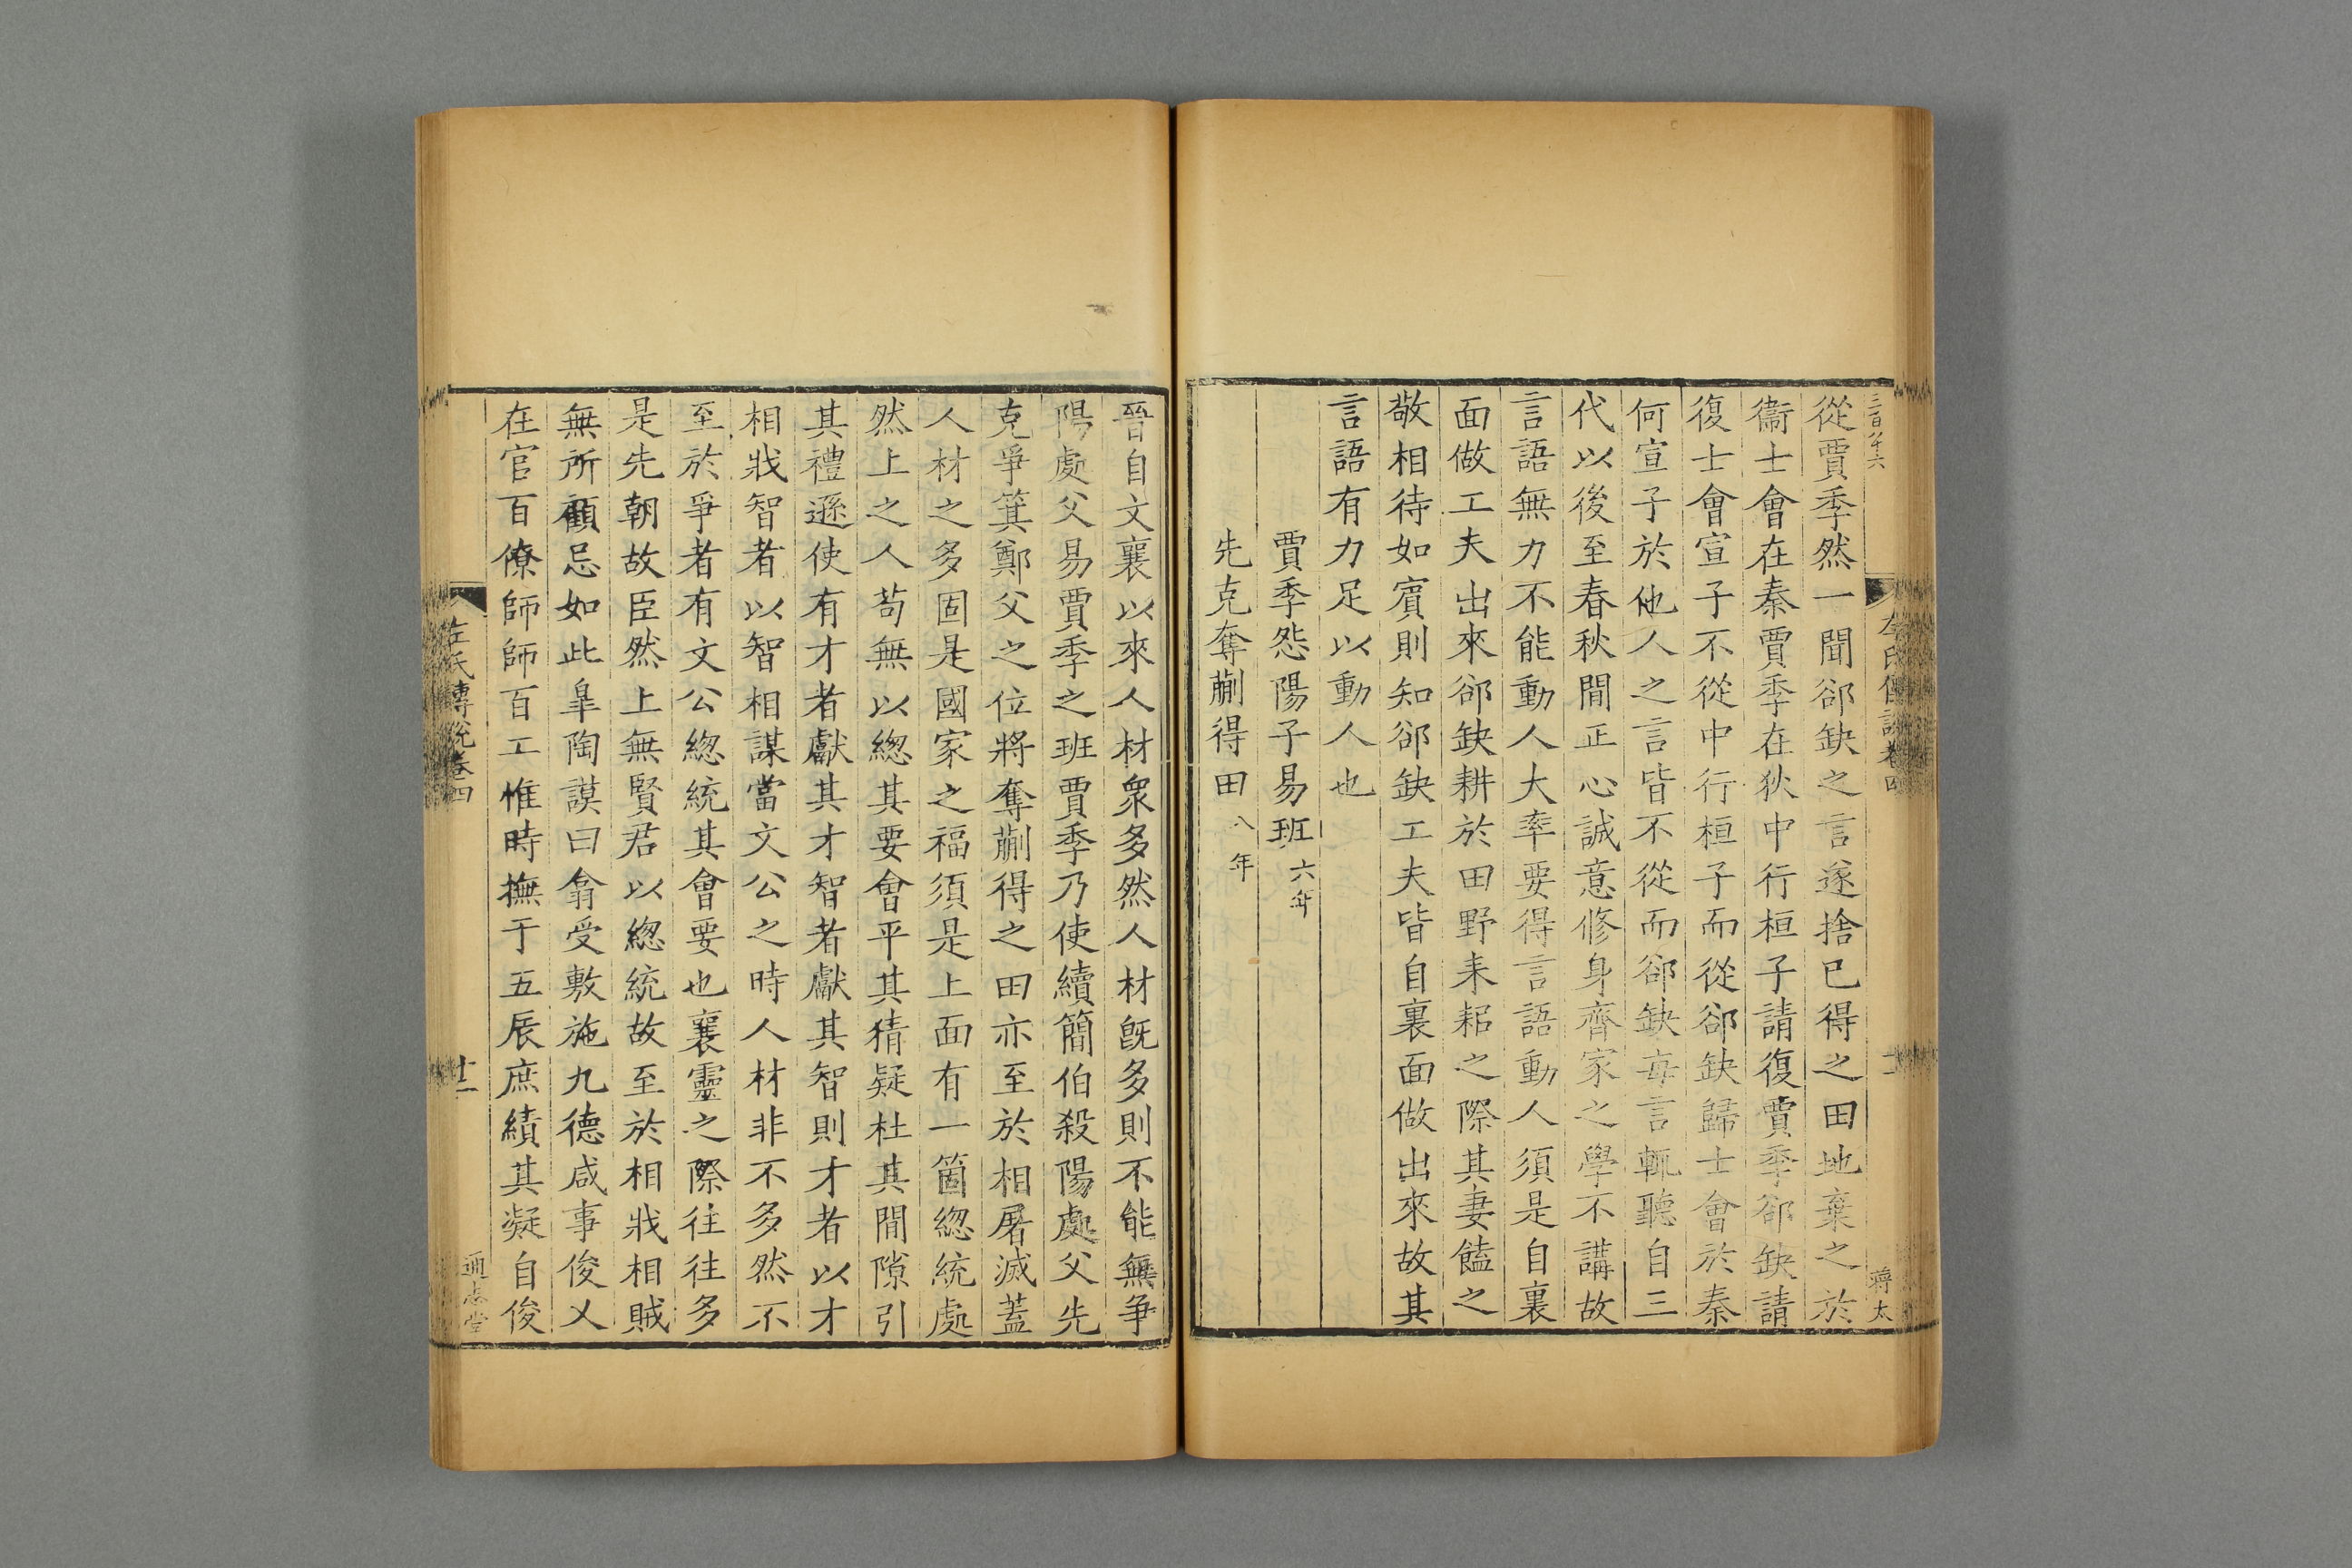 左氏傳說卷四
十一
蔣太
從賈季然一聞郤缺之言遂捨已得之田地棄之於
衞士會在秦賈季在狄中行桓子請復賈季郤缺請
復士會宣子不從中行桓子而從郤缺歸士會於秦
何宣子於他人之言皆不從而郤缺每言輒聽自三
代以後至春秋間正心誠意修身齊家之學不講故
言語無力不能動人大率要得言語動人須是自裏
面做工夫出來郤缺耕於田野耒耜之際其妻饁之
敬相待如賓則知郤缺工夫皆自裏面做出來故其
言語有力足以動人也
賈季怨陽子易班六年
先克奪蒯得田八年
晉自文襄以來人材衆多然人材旣多則不能無爭
陽處父易賈季之班賈季乃使續簡伯殺陽處父先
克爭箕鄭父之位將奪蒯得之田亦至於相屠滅蓋
人材之多固是國家之福須是上面有一箇緫統處
然上之人苟無以緫其要會平其猜疑杜其間隙引
其禮遜使有才者獻其才智者獻其智則才者以才
相戕智者以智相謀當文公之時人材非不多然不
至於爭者有文公緫統其會要也襄靈之際往往多
是先朝故臣然上無賢君以緫統故至於相戕相賊
無所顧忌如此臯陶謨曰翕受敷施九德咸事俊乂
在官百僚師師百工惟時撫于五辰庶績其凝自俊
左氏傳說卷四
十二
通志堂